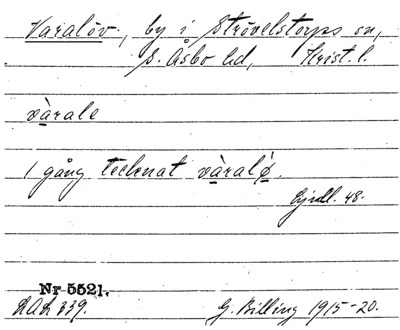 Varalöv., by i Strövelstorps sn,
S. Åsbo hd, Krist. l.
vàrale
1 gång tecknat vàralǿ.
Ejndl. 48.
Nr 5521.
LAL 339. G. Billing 1915-20.